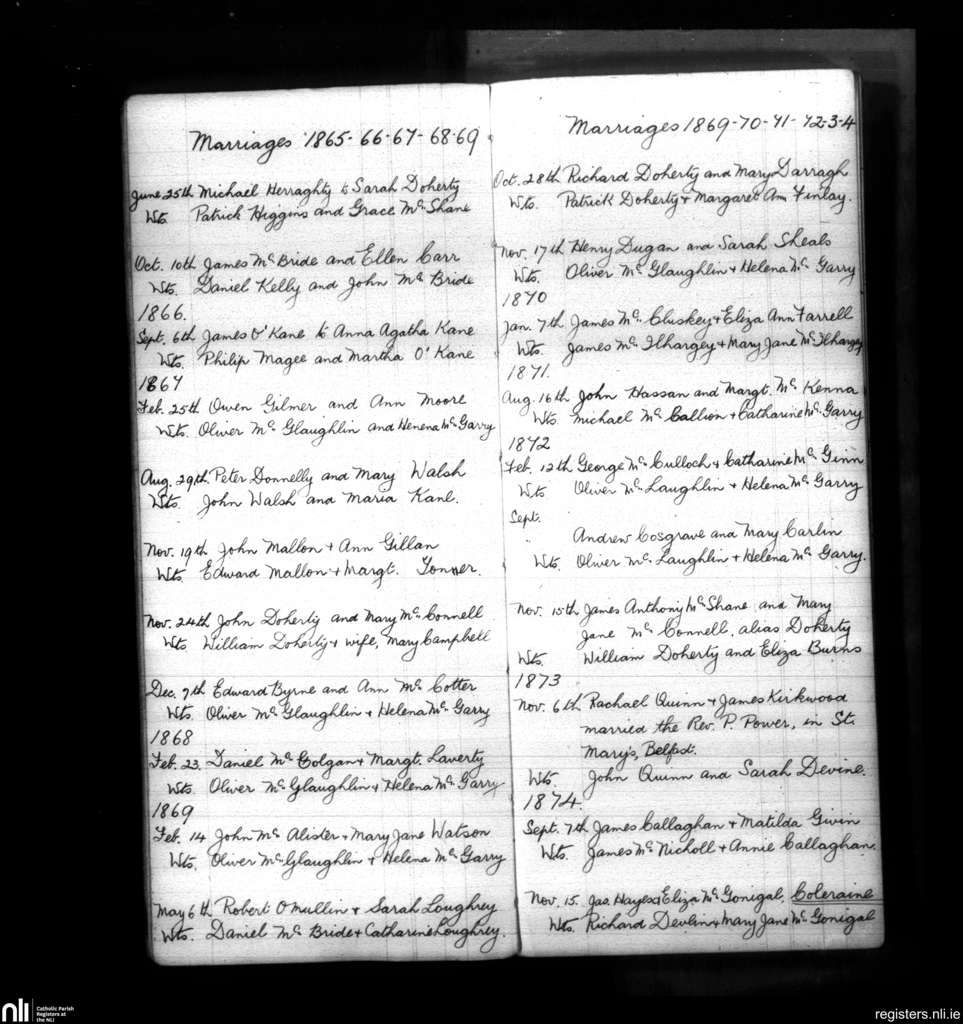 Marriages 1865-66-67-68-69
June 25th Michael Herraghty to Sarah Doherty
Wts. Patrick Higgins and Grace McShane
Oct. 10th James McBride and Ellen Carr
Wts. Daniel Kelly and John McBride
1866.
Sept. 6th James O'Kane to Anna Agatha Kane
Wts. Philip Magee and Martha O'Kane
1867
Feb. 25th Owen Gilmer and Ann Moore
Wts. Oliver McGlaughlin and Henena McGarry
Aug. 29th Peter Donnelly and Mary Walsh
Wts. John Walsh and Maria Kane.
Nov. 19th John Mallon + Ann Gillan
Wts. Edward Mallon + Margt. Tonner.
Nov. 24th John Doherty and Mary McConnell
Wts. William Doherty + wife, Mary Campbell
Dec. 7th Edward Byrne and Ann McCotter
Wts. Oliver McGlaughlin + Helena McGarry
1868
Feb. 23. Daniel McColgan + Margt. Laverty
Wts. Oliver McGlaughlin + Helena McGarry
1869
Feb. 14 John McAlister + Mary Jane Watson
Wts. Oliver McGlaughlin + Helena McGarry
May 6th Robert O'Mullin + Sarah Loughrey
Wts. Daniel McBride + Catharine Loughrey.
Marriages 1869-70-71-72-3-4
Oct. 28th Richard Doherty and Mary Darragh
Wts. Patrick Doherty + Margaret Ann Finlay.
Nov. 17th Henry Dugan and Sarah Sheals
Wts. Oliver McGlaughlin + Helena McGarry
1870
Jan. 7th James McCluskey + Eliza Ann Farrell
Wts. James McIlhargey + Mary Jane McIlhargey
1871.
Aug. 16th John Hassan and Margt. McKenna
Wts. Michael McCallion + Catharine McGarry
1872
Feb. 12th George McCulloch + Catharine McGinn
Wts. Oliver McLaughlin + Helena McGarry
Sept.
Andrew Cosgrave and Mary Carlin
Wts. Oliver McLaughlin + Helena McGarry.
Nov. 15th James Anthony McShane and Mary
Jane McConnell, alias Doherty
Wts. William Doherty and Eliza Burns
1873
Nov. 6th Rachael Quinn + James Kirkwood
married the Rev. P. Power, in St.
Mary's, Belfast.
Wts. John Quinn and Sarah Devine.
1874.
Sept. 7th James Callaghan + Matilda Givin
Wts. James McNicholl + Annie Callaghan.
Nov. 15. Jas. Hayes + Eliza McGonigal, Coleraine
Wts. Richard Devlin + Mary Jane McGonigal
nli Catholic Parish
Registers at
the NLI
registers.nli.ie